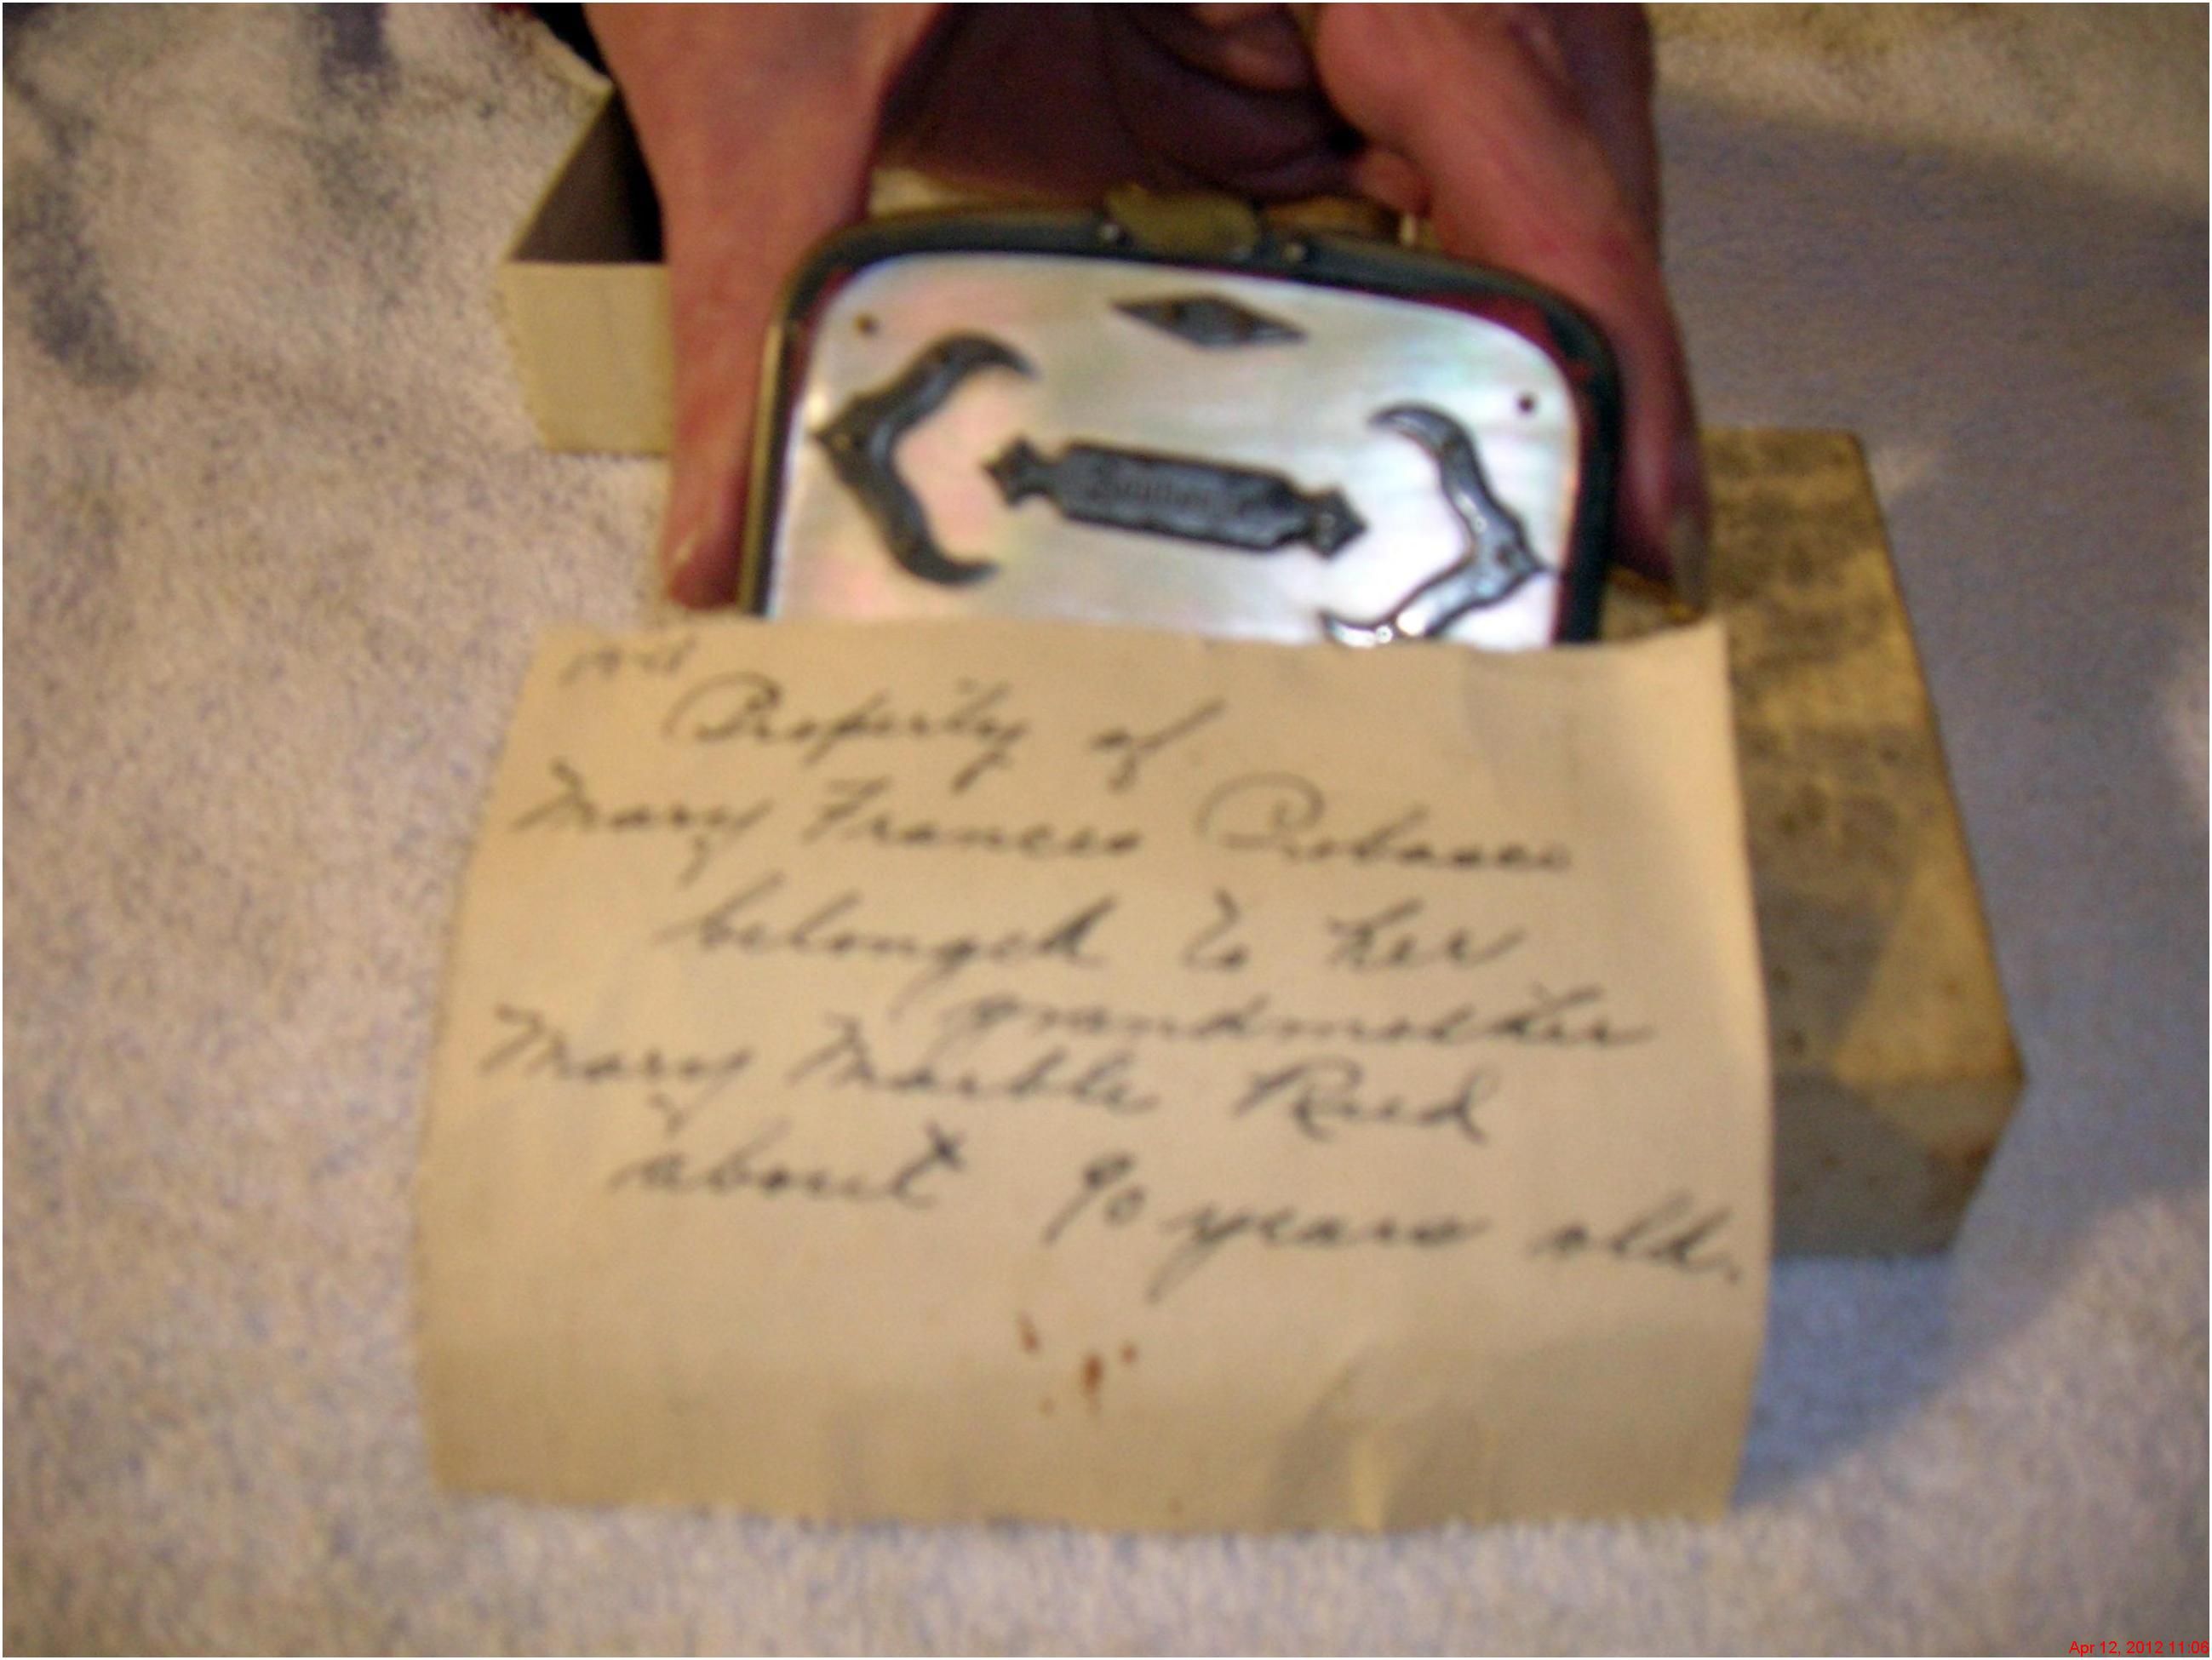 Property of
Mary Frances Probasco
belonged to her
grandmother
Mary Marble Reed
about 90 years old.
Apr 12, 2012 11:06